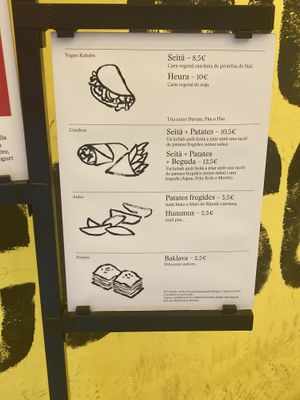 Vegan Kebabs
Seità – 8,5€
Carn vegetal casolana de proteïna de blat.
Heura – 10€
Carn vegetal de soja.
Tria entre Durum, Pita o Plat.
Combos
Seità + Patates – 10,5€
Un kebab amb Seità a triar amb una ració
de patates fregides (sense salsa).
Seità + Patates
+ Beguda – 12,5€
Un kebab amb Seità a triar amb una ració
de patates fregides (sense salsa) i una
beguda (Aigua, Fritz Kola o Moritz).
Sides
Patates fregides – 3,5€
Amb Maio
Hummus – 5,5€
Amb pita.
Postres
Baklava – 2,5€
Diferents sabors.